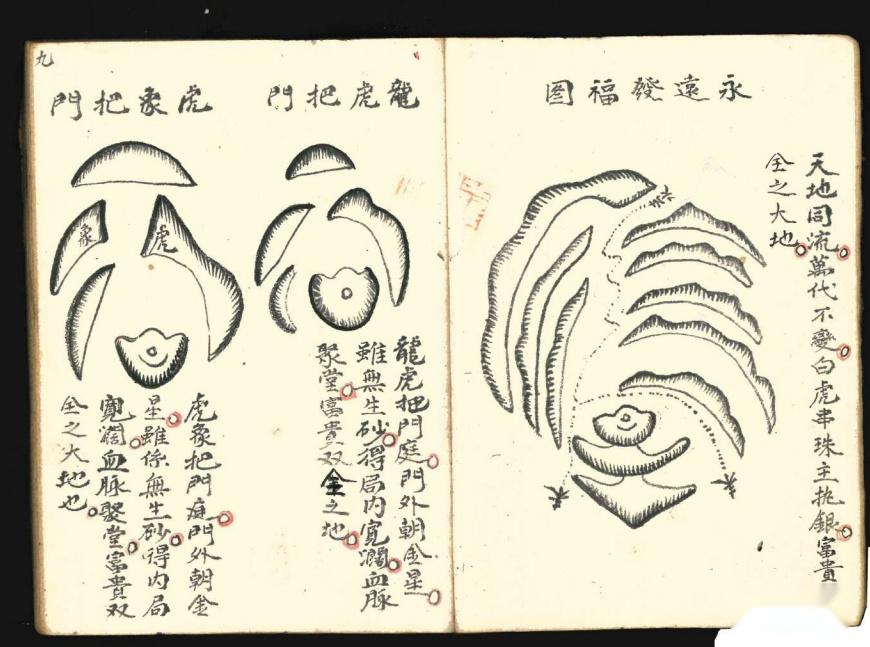 永遠發福圖
天地同流萬代不變白虎串珠主执銀富貴
全之大地
龍虎把門
龍虎把門庭門外朝金星
雖無生砂得局內寬濶血脉
聚堂富貴双全之地
虎象把門
象
虎
虎象把門庭門外朝金
星雖係無生砂得內局
寬濶血脉聚堂富貴双
全之大地也
九